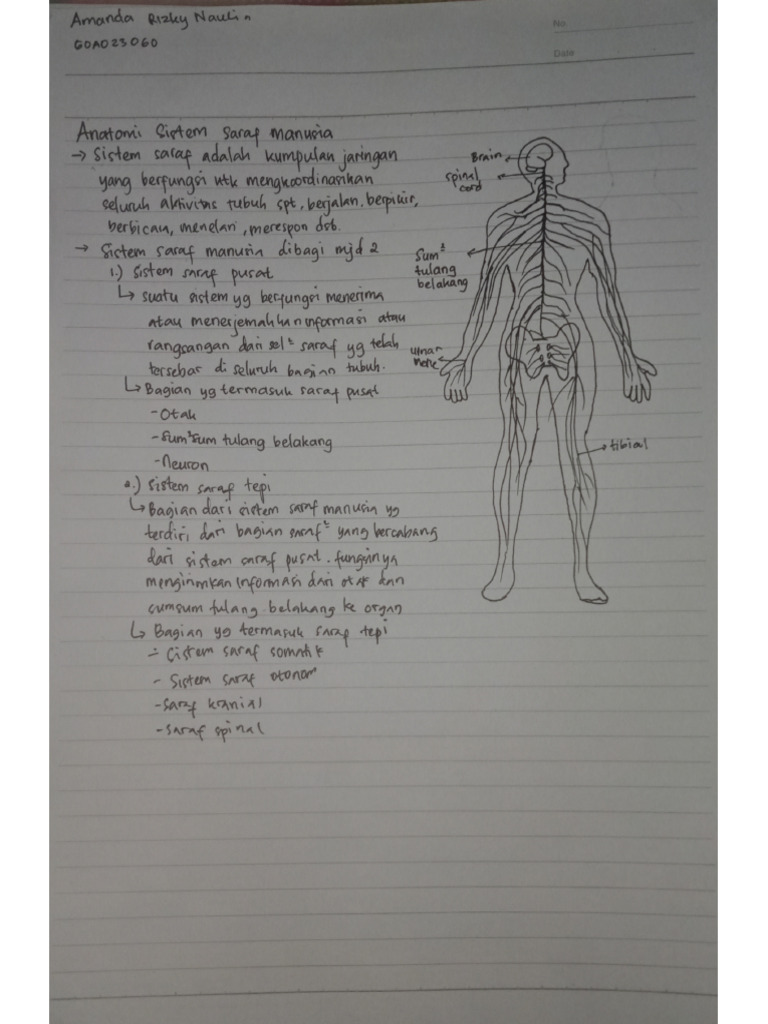 Amanda Rizky Naulin
G0A023060
No
Date
Anatomi Sistem Saraf manusia
→ Sistem saraf adalah kumpulan jaringan
yang berfungsi utk mengkoordinasikan
seluruh aktivitas tubuh spt, berjalan, berpikir,
berbicara, menelan, merespon dsb.
→ Sistem saraf manusia dibagi mjd 2
1.) Sistem saraf pusat
↳ suatu sistem yg berfungsi menerima
atau menerjemahkan informasi atau
rangsangan dari sel² saraf yg telah
tersebar di seluruh bagian tubuh.
↳ Bagian yg termasuk saraf pusat
- Otak
- Sum²sum tulang belakang
- Neuron
2.) Sistem saraf tepi
↳ Bagian dari sistem saraf manusia yg
terdiri dari bagian saraf² yang bercabang
dari sistem saraf pusat. fungsinya
mengirimkan informasi dari otak dan
sumsum tulang belakang ke organ
↳ Bagian yg termasuk saraf tepi
- Sistem saraf somatik
- Sistem saraf otonom
- Saraf kranial
- Saraf spinal
Brain
spinal
cord
Sum²
tulang
belakang
ulnar
nerve
tibial